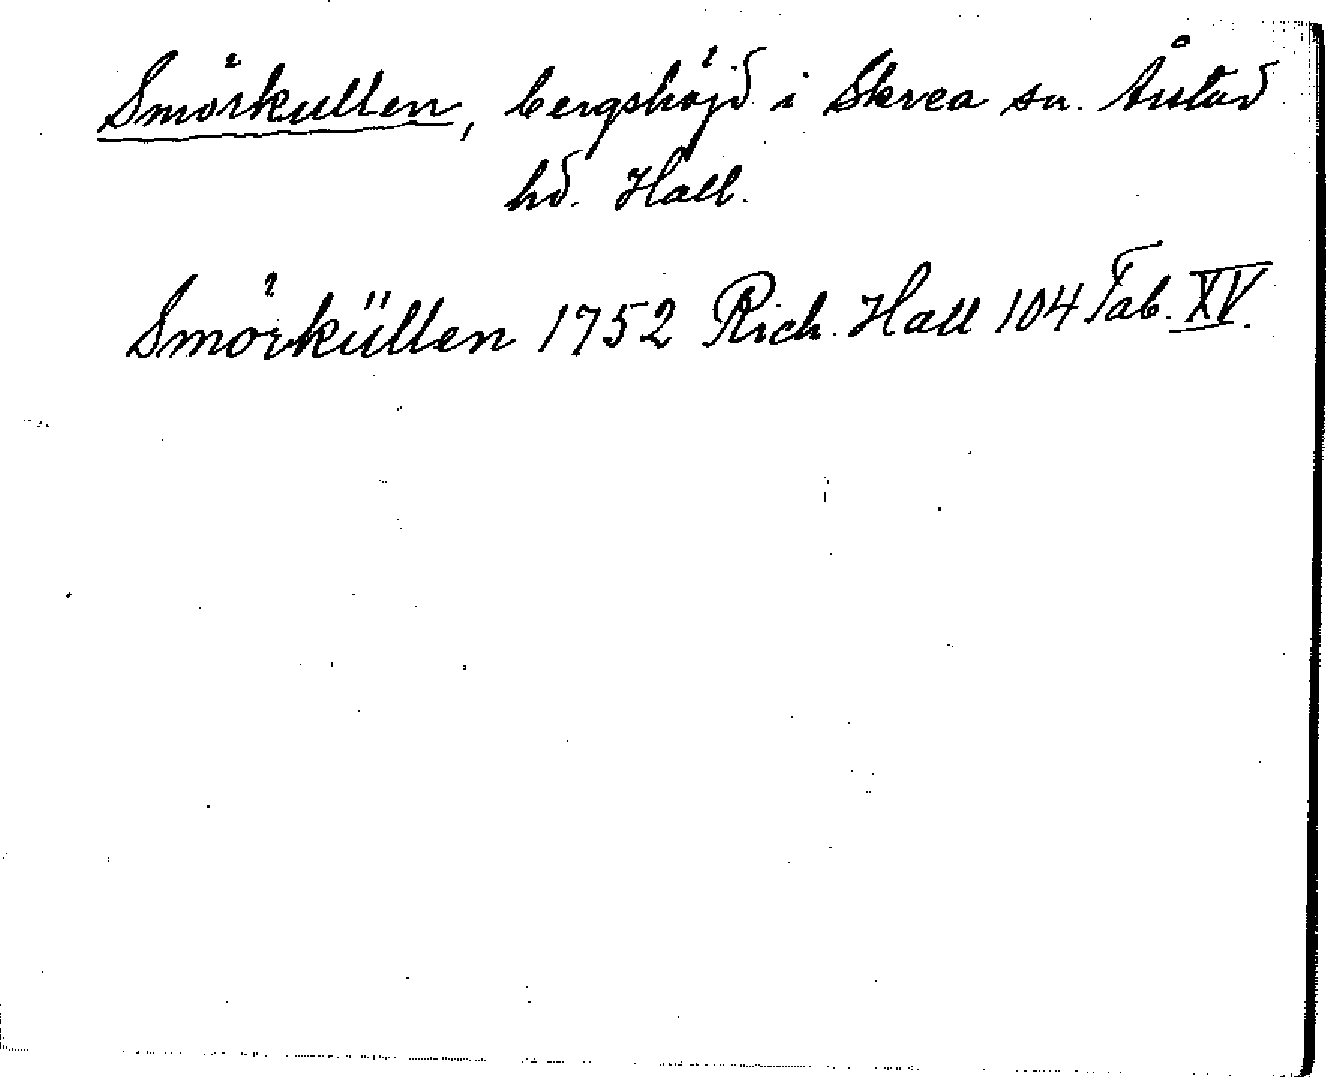 Smörkullen, bergshöjd i Skrea sn. Årstad
hd. Hall.
Smörküllen 1752 Rich. Hall 104 Tab. XV.